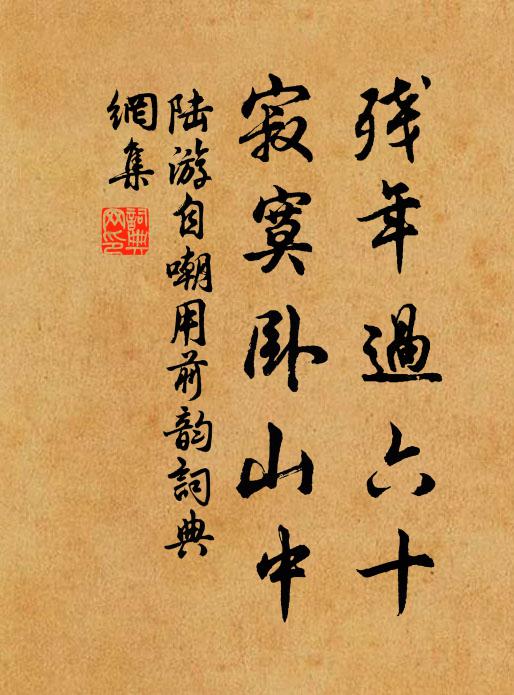 残年過六十
寂寞卧山中
陆游自嘲用前韵詞典
網集
詞典
网印